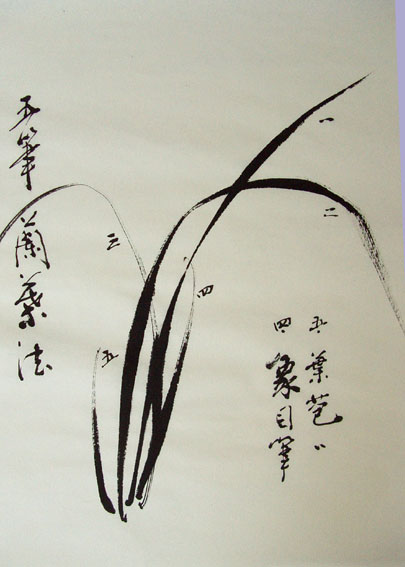 五筆蘭葉法
一
二
三
四
五
四 象目筆
五 葉苞〃